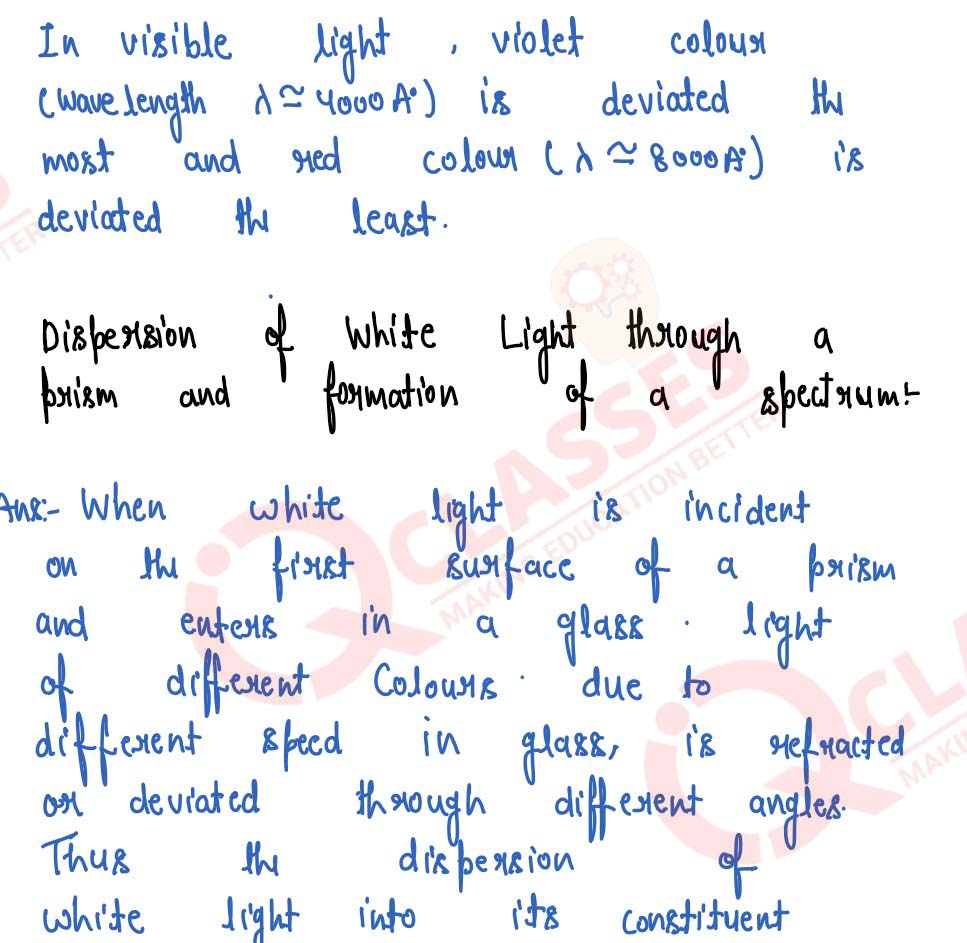 In visible light, violet colour
(wave length λ ≃ 4000 A°) is deviated the
most and red colour (λ ≃ 8000 A°) is
deviated the least.
Dispersion of White Light through a
prism and formation of a spectrum:-
Ans:- When white light is incident
on the first surface of a prism
and enters in a glass. light
of different Colours. due to
different speed in glass, is refracted
or deviated through different angles.
Thus the dispersion of
white light into its constituent
CLASSES
MAKING EDUCATION BETTER